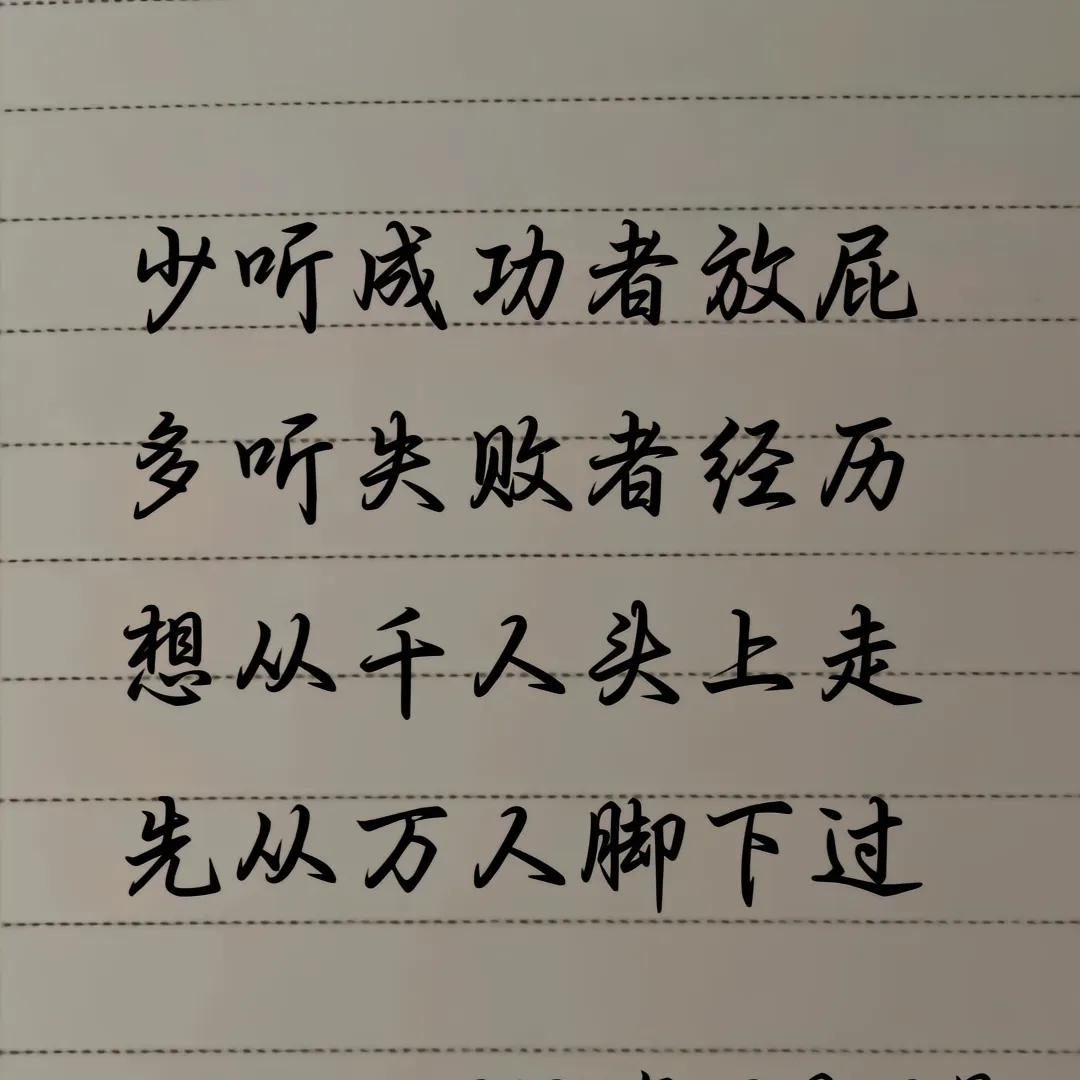 少听成功者放屁
多听失败者经历
想从千人头上走
先从万人脚下过